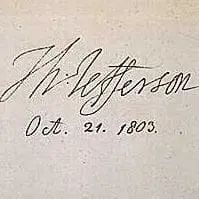 Th. Jefferson
Oct. 21. 1803.